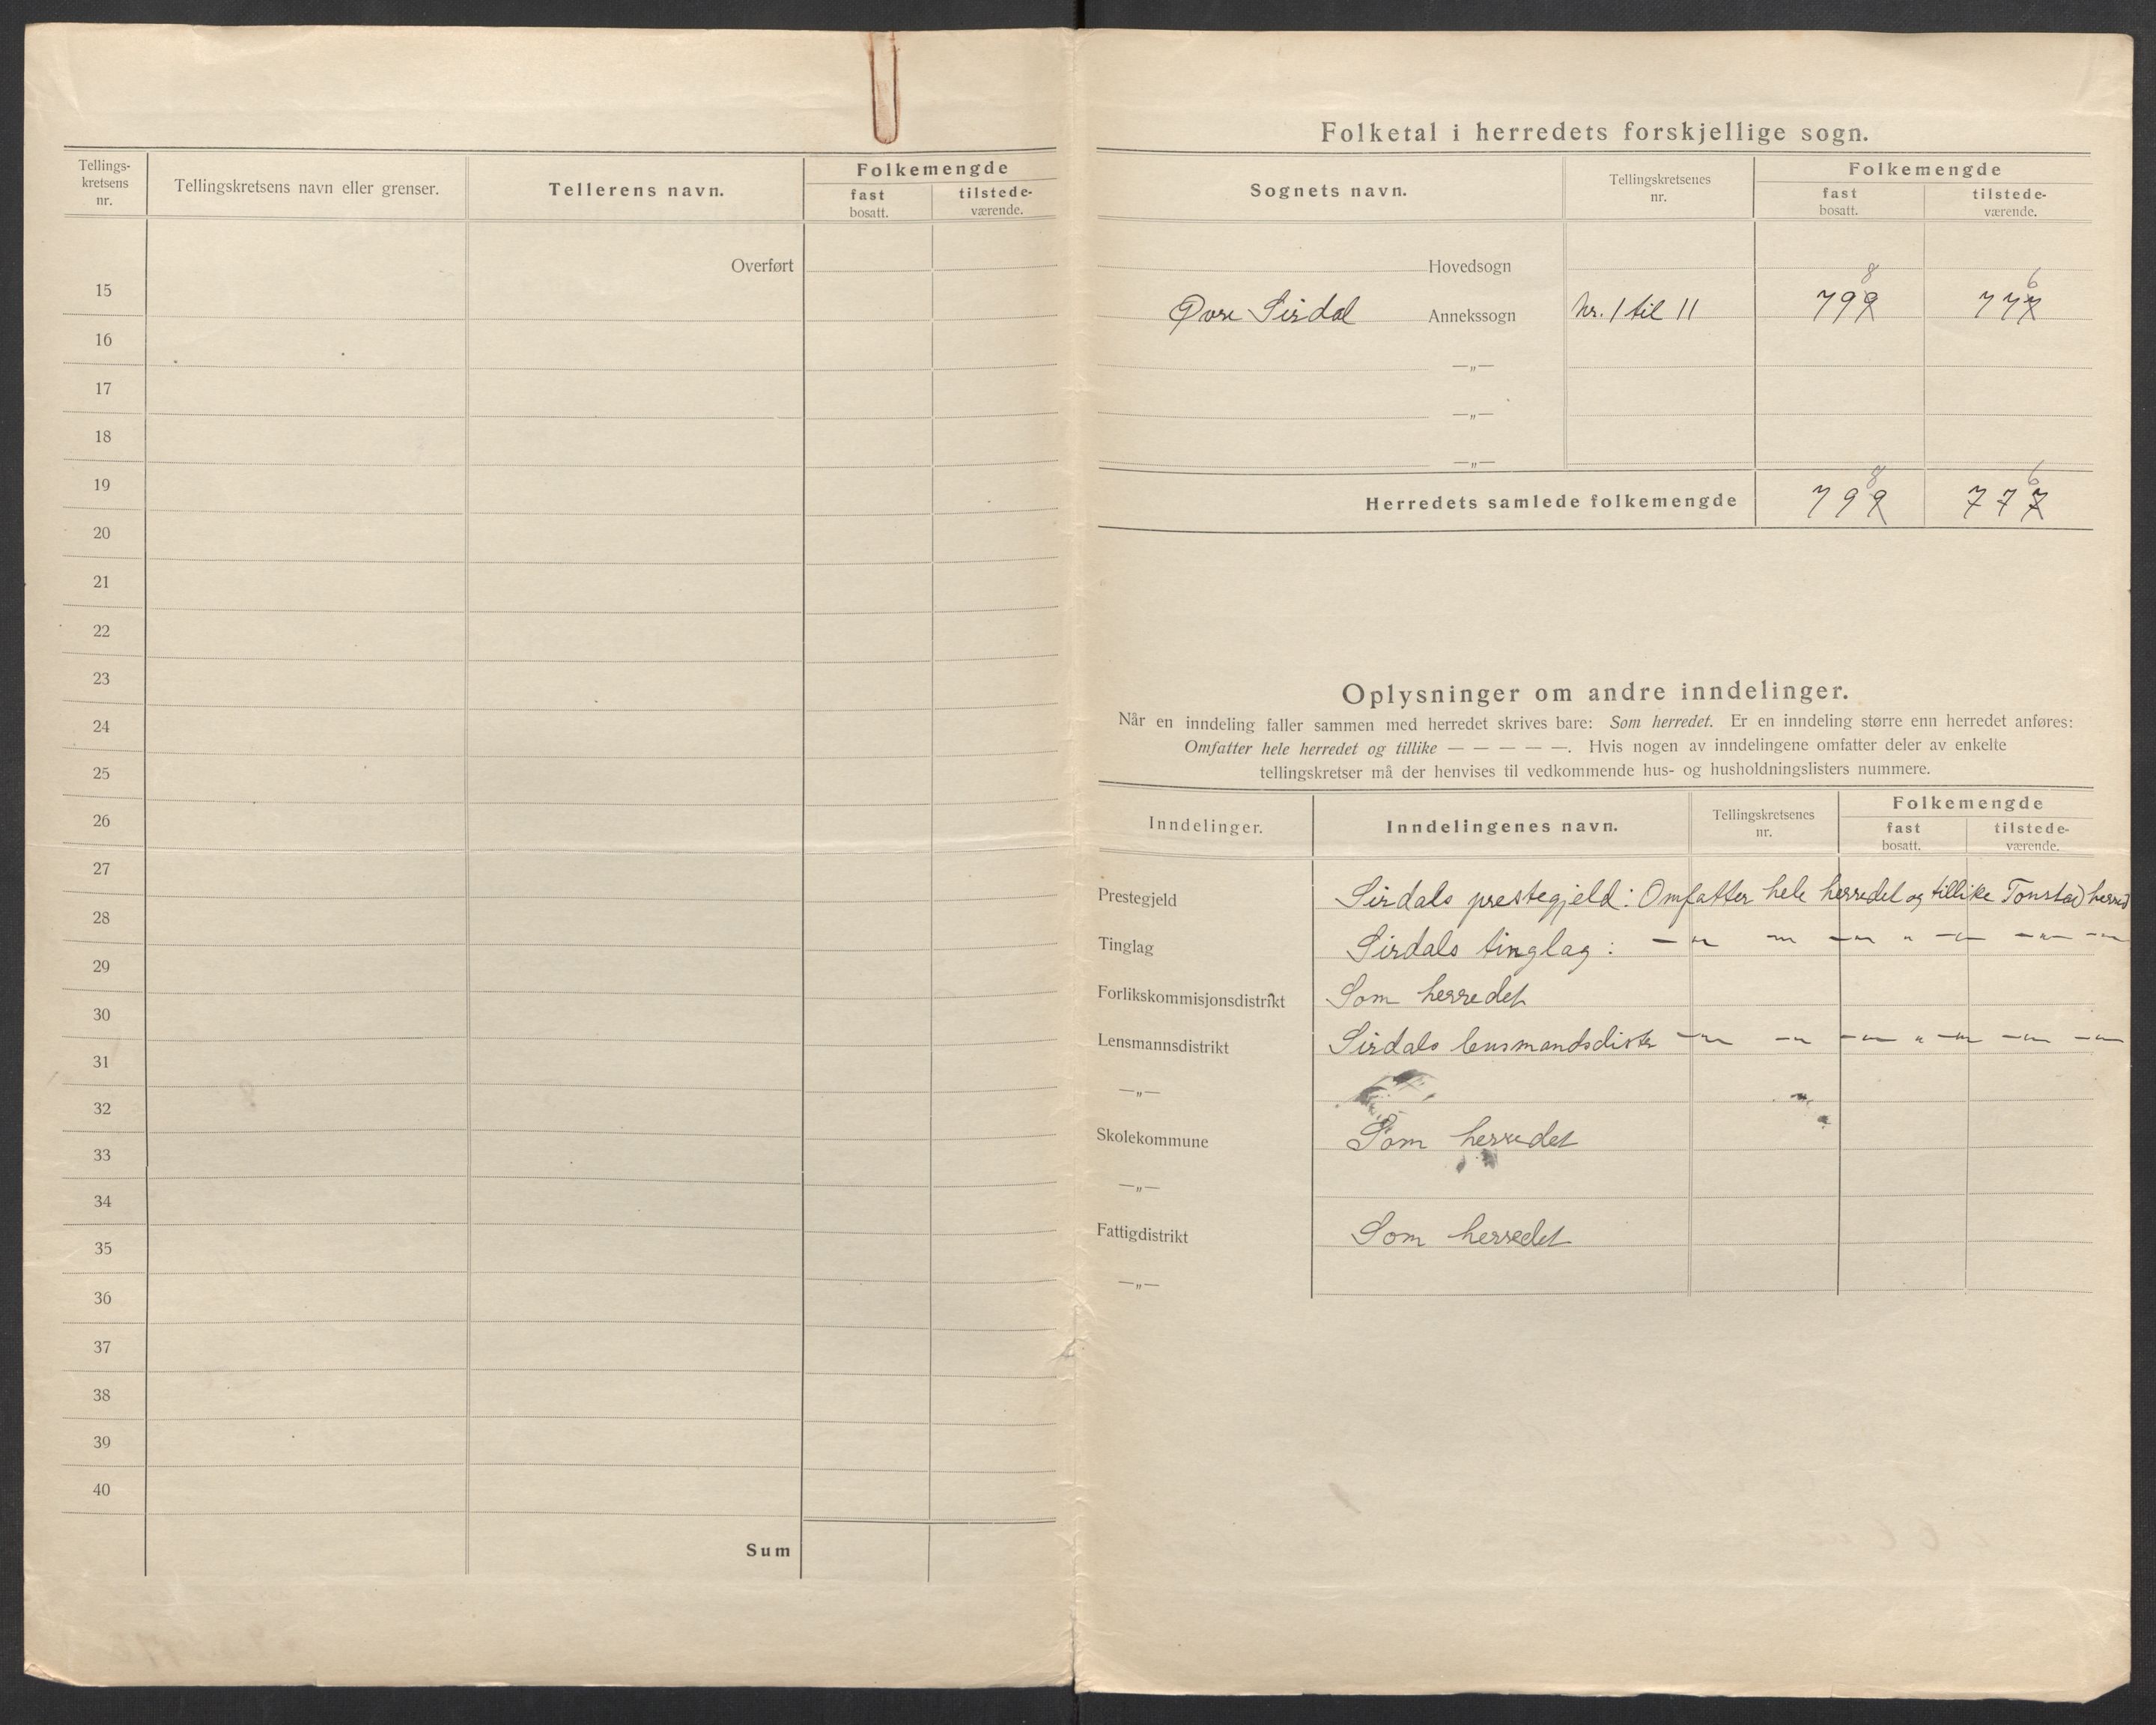 Tellings-
kretsens
nr.
Tellingskretsens navn eller grenser.
Tellerens navn.
Folkemengde
fast
bosatt.
tilstede-
værende.
Overført
15
16
17
18
19
20
21
22
23
24
25
26
27
28
29
30
31
32
33
34
35
36
37
38
39
40
Sum
Folketal i herredets forskjellige sogn.
Sognets navn.
Tellingskretsenes
nr.
Folkemengde
fast
bosatt.
tilstede-
værende.
Hovedsogn
8 6
Øvre Sirdal Annekssogn Nr. 1 til 11 799 777
—„—
—„—
—„—
8 6
Herredets samlede folkemengde 799 777
Oplysninger om andre inndelinger.
Når en inndeling faller sammen med herredet skrives bare: Som herredet. Er en inndeling større enn herredet anføres:
Omfatter hele herredet og tillike — — — — —. Hvis nogen av inndelingene omfatter deler av enkelte
tellingskretser må der henvises til vedkommende hus- og husholdningslisters nummere.
Inndelinger.
Inndelingenes navn.
Tellingskretsenes
nr.
Folkemengde
fast
bosatt.
tilstede-
værende.
Prestegjeld Sirdals prestegjeld: Omfatter hele herredet og tillike Tonstad herred
Tinglag Sirdals tinglag: —„— —„— —„— „ —„— —„— —„—
Forlikskommisjonsdistrikt Som herredet
Lensmannsdistrikt Sirdals lensmandsdistr —„— —„— —„— „ —„— —„— —„—
—„—
Skolekommune Som herredet
—„—
Fattigdistrikt Som herredet
—„—